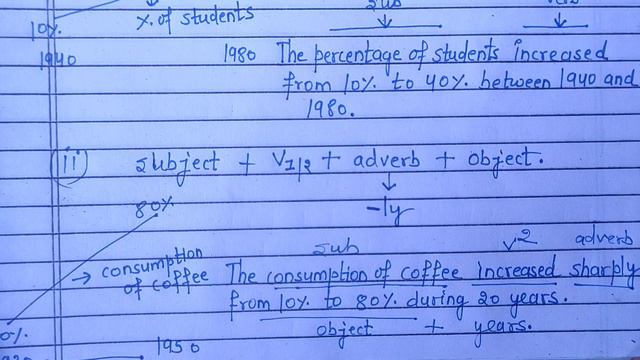 sub
10%.
%. of students
1940
1980 The percentage of students increased
from 10%. to 40%. between 1940 and
1980.
(ii) subject + V1/2 + adverb + object.
80%
-ly
sub V2 adverb
→ consumption
of coffee
The consumption of coffee increased sharply
from 10%. to 80%. during 20 years.
object + years.
0%.
1950